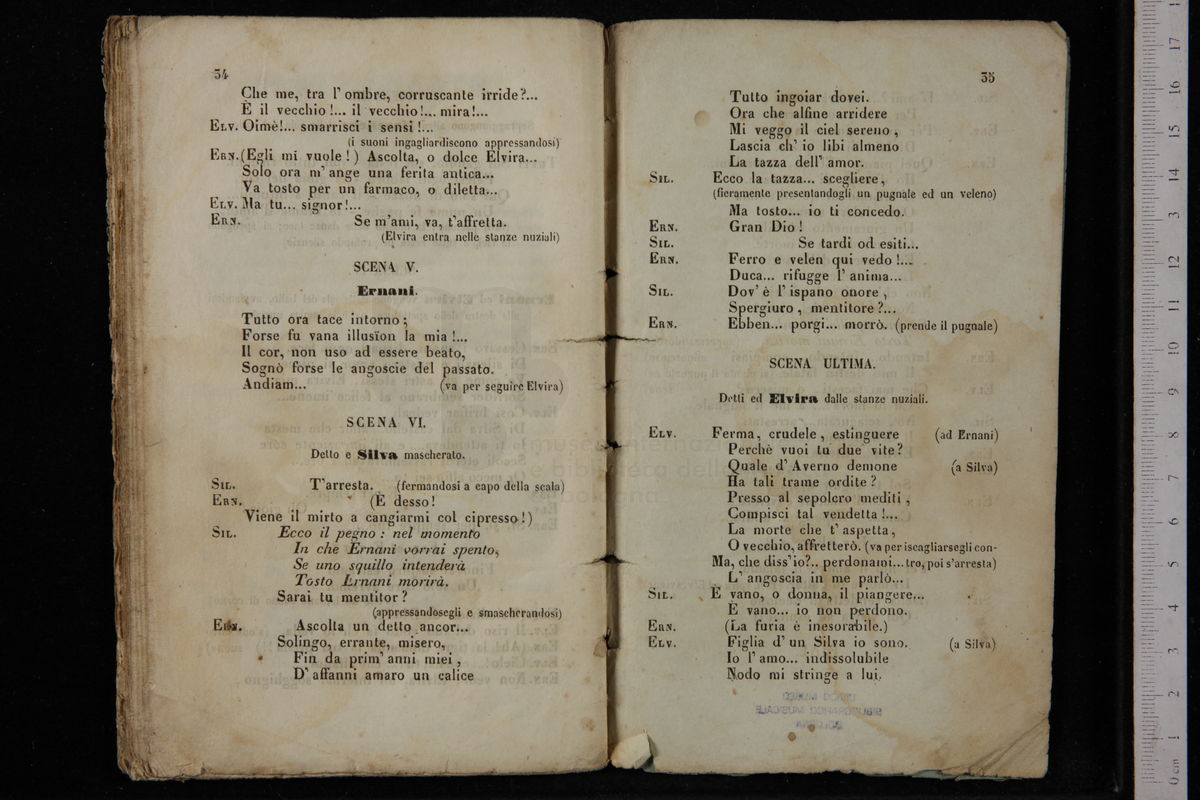 34
Che me, tra l' ombre, corruscante irride?...
È il vecchio!... il vecchio!... mira!...
ELV. Oimè!... smarrisci i sensi!...
(i suoni ingagliardiscono appressandosi)
ERN. (Egli mi vuole!) Ascolta, o dolce Elvira...
Solo ora m' ange una ferita antica...
Va tosto per un farmaco, o diletta...
ELV. Ma tu... signor!...
ERN. Se m'ami, va, t'affretta.
(Elvira entra nelle stanze nuziali)
SCENA V.
Ernani.
Tutto ora tace intorno;
Forse fu vana illusïon la mia!...
Il cor, non uso ad essere beato,
Sognò forse le angoscie del passato.
Andiam... (va per seguire Elvira)
SCENA VI.
Detto e Silva mascherato.
SIL. T'arresta. (fermandosi a capo della scala)
ERN. (È desso!
Viene il mirto a cangiarmi col cipresso!)
SIL. Ecco il pegno: nel momento
In che Ernani vorrai spento,
Se uno squillo intenderà
Tosto Ernani morirà.
Sarai tu mentitor?
(appressandosegli e smascherandosi)
ERN. Ascolta un detto ancor...
Solingo, errante, misero,
Fin da prim' anni miei,
D' affanni amaro un calice
35
Tutto ingoiar dovei.
Ora che alfine arridere
Mi veggo il ciel sereno,
Lascia ch' io libi almeno
La tazza dell' amor.
SIL. Ecco la tazza... scegliere,
(fieramente presentandogli un pugnale ed un veleno)
Ma tosto... io ti concedo.
ERN. Gran Dio!
SIL. Se tardi od esiti...
ERN. Ferro e velen qui vedo!...
Duca... rifugge l' anima...
SIL. Dov' è l' ispano onore,
Spergiuro, mentitore?...
ERN. Ebben... porgi... morrò. (prende il pugnale)
SCENA ULTIMA.
Detti ed Elvira dalle stanze nuziali.
ELV. Ferma, crudele, estinguere (ad Ernani)
Perchè vuoi tu due vite?
Quale d' Averno demone (a Silva)
Ha tali trame ordite?
Presso al sepolcro mediti,
Compisci tal vendetta!...
La morte che t' aspetta,
O vecchio, affretterò. (va per iscagliarsegli con-
Ma, che diss' io?.. perdonami... tro, poi s'arresta)
L' angoscia in me parlò...
SIL. È vano, o donna, il piangere...
È vano... io non perdono.
ERN. (La furia è inesorabile.)
ELV. Figlia d' un Silva io sono. (a Silva)
Io l' amo... indissolubile
Nodo mi stringe a lui.